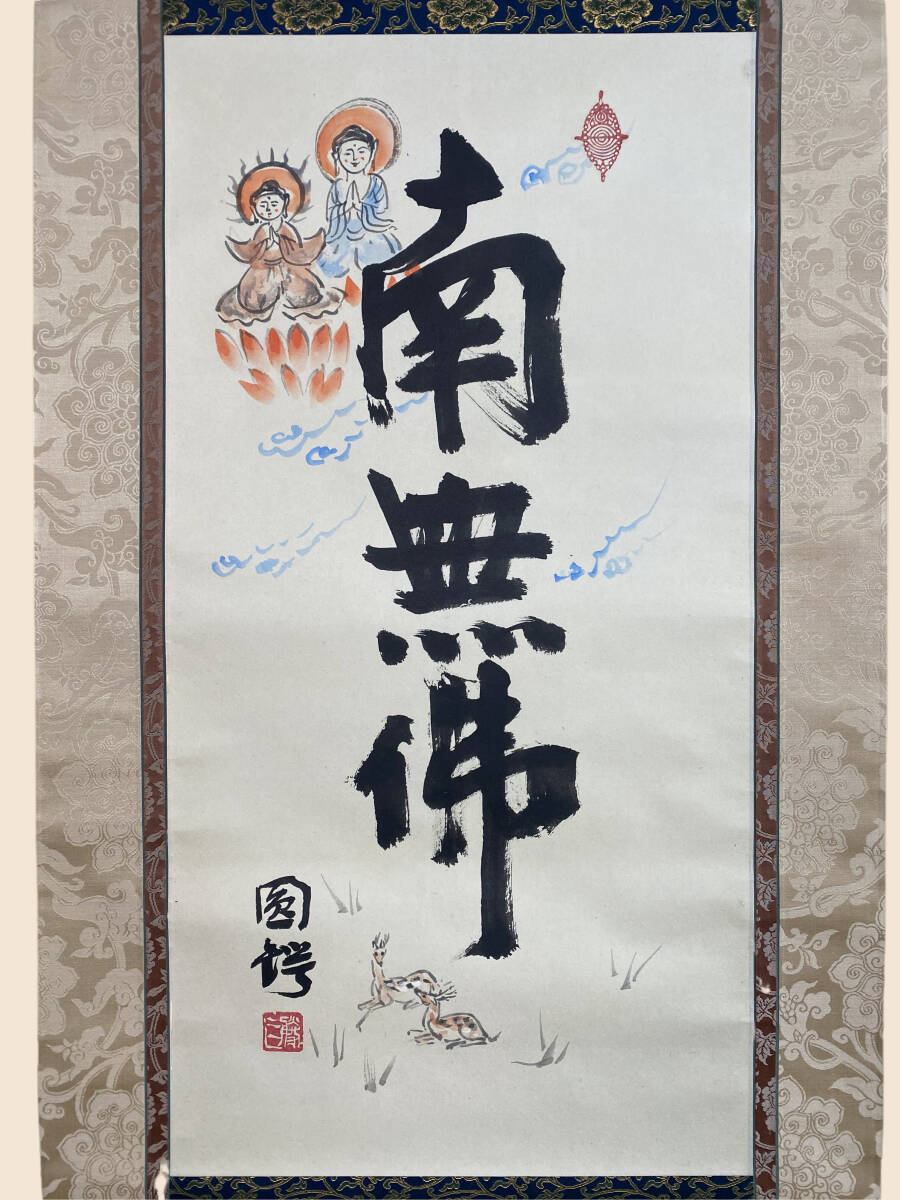 南無佛
圓諤